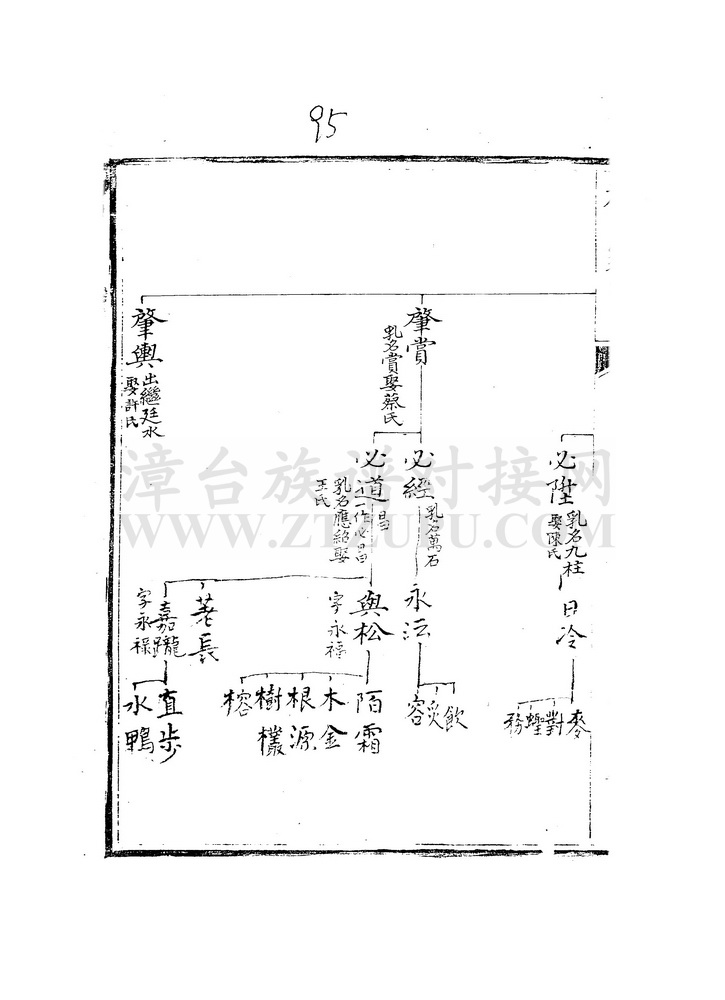 95
肇賞
乳名賞娶蔡氏
肇輿
出繼廷水
娶許氏
必陞
乳名九柱
娶陳氏
必經
乳名萬石
必道
一作必昌
昌
乳名應紹娶
王氏
日冷
永沄
與松
字永福
荖長
嘉躘
字永祿
麥
對
務
飲
災
容
陌霜
木金
根源
樹欉
榕
直步
水鴨
漳台族谱对接网
WWW.ZTZUPU.COM